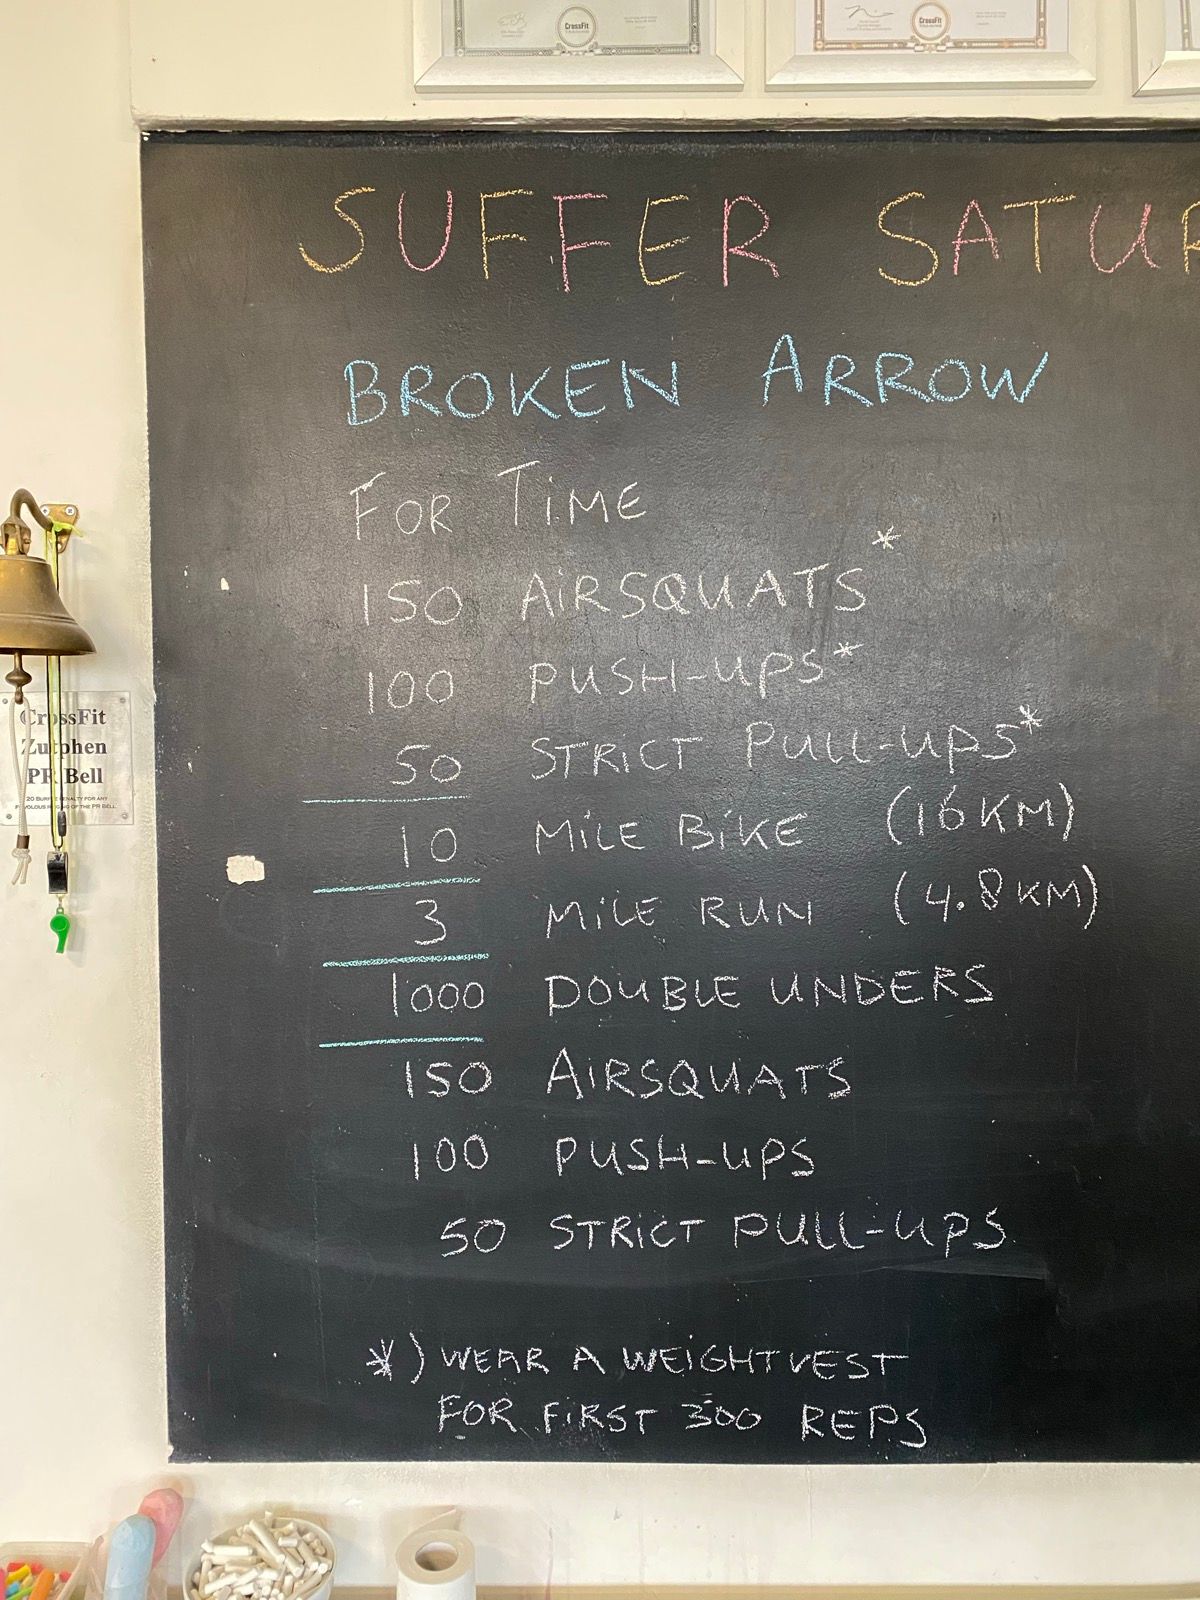 CrossFit
CrossFit
SUFFER SATUR
BROKEN ARROW
FOR TIME
150 AIRSQUATS*
100 PUSH-UPS*
50 STRICT PULL-UPS*
10 MILE BIKE (16KM)
3 MILE RUN (4.8KM)
1000 DOUBLE UNDERS
150 AIRSQUATS
100 PUSH-UPS
50 STRICT PULL-UPS
*) WEAR A WEIGHTVEST
FOR FIRST 300 REPS
CrossFit
Zutphen
PR Bell